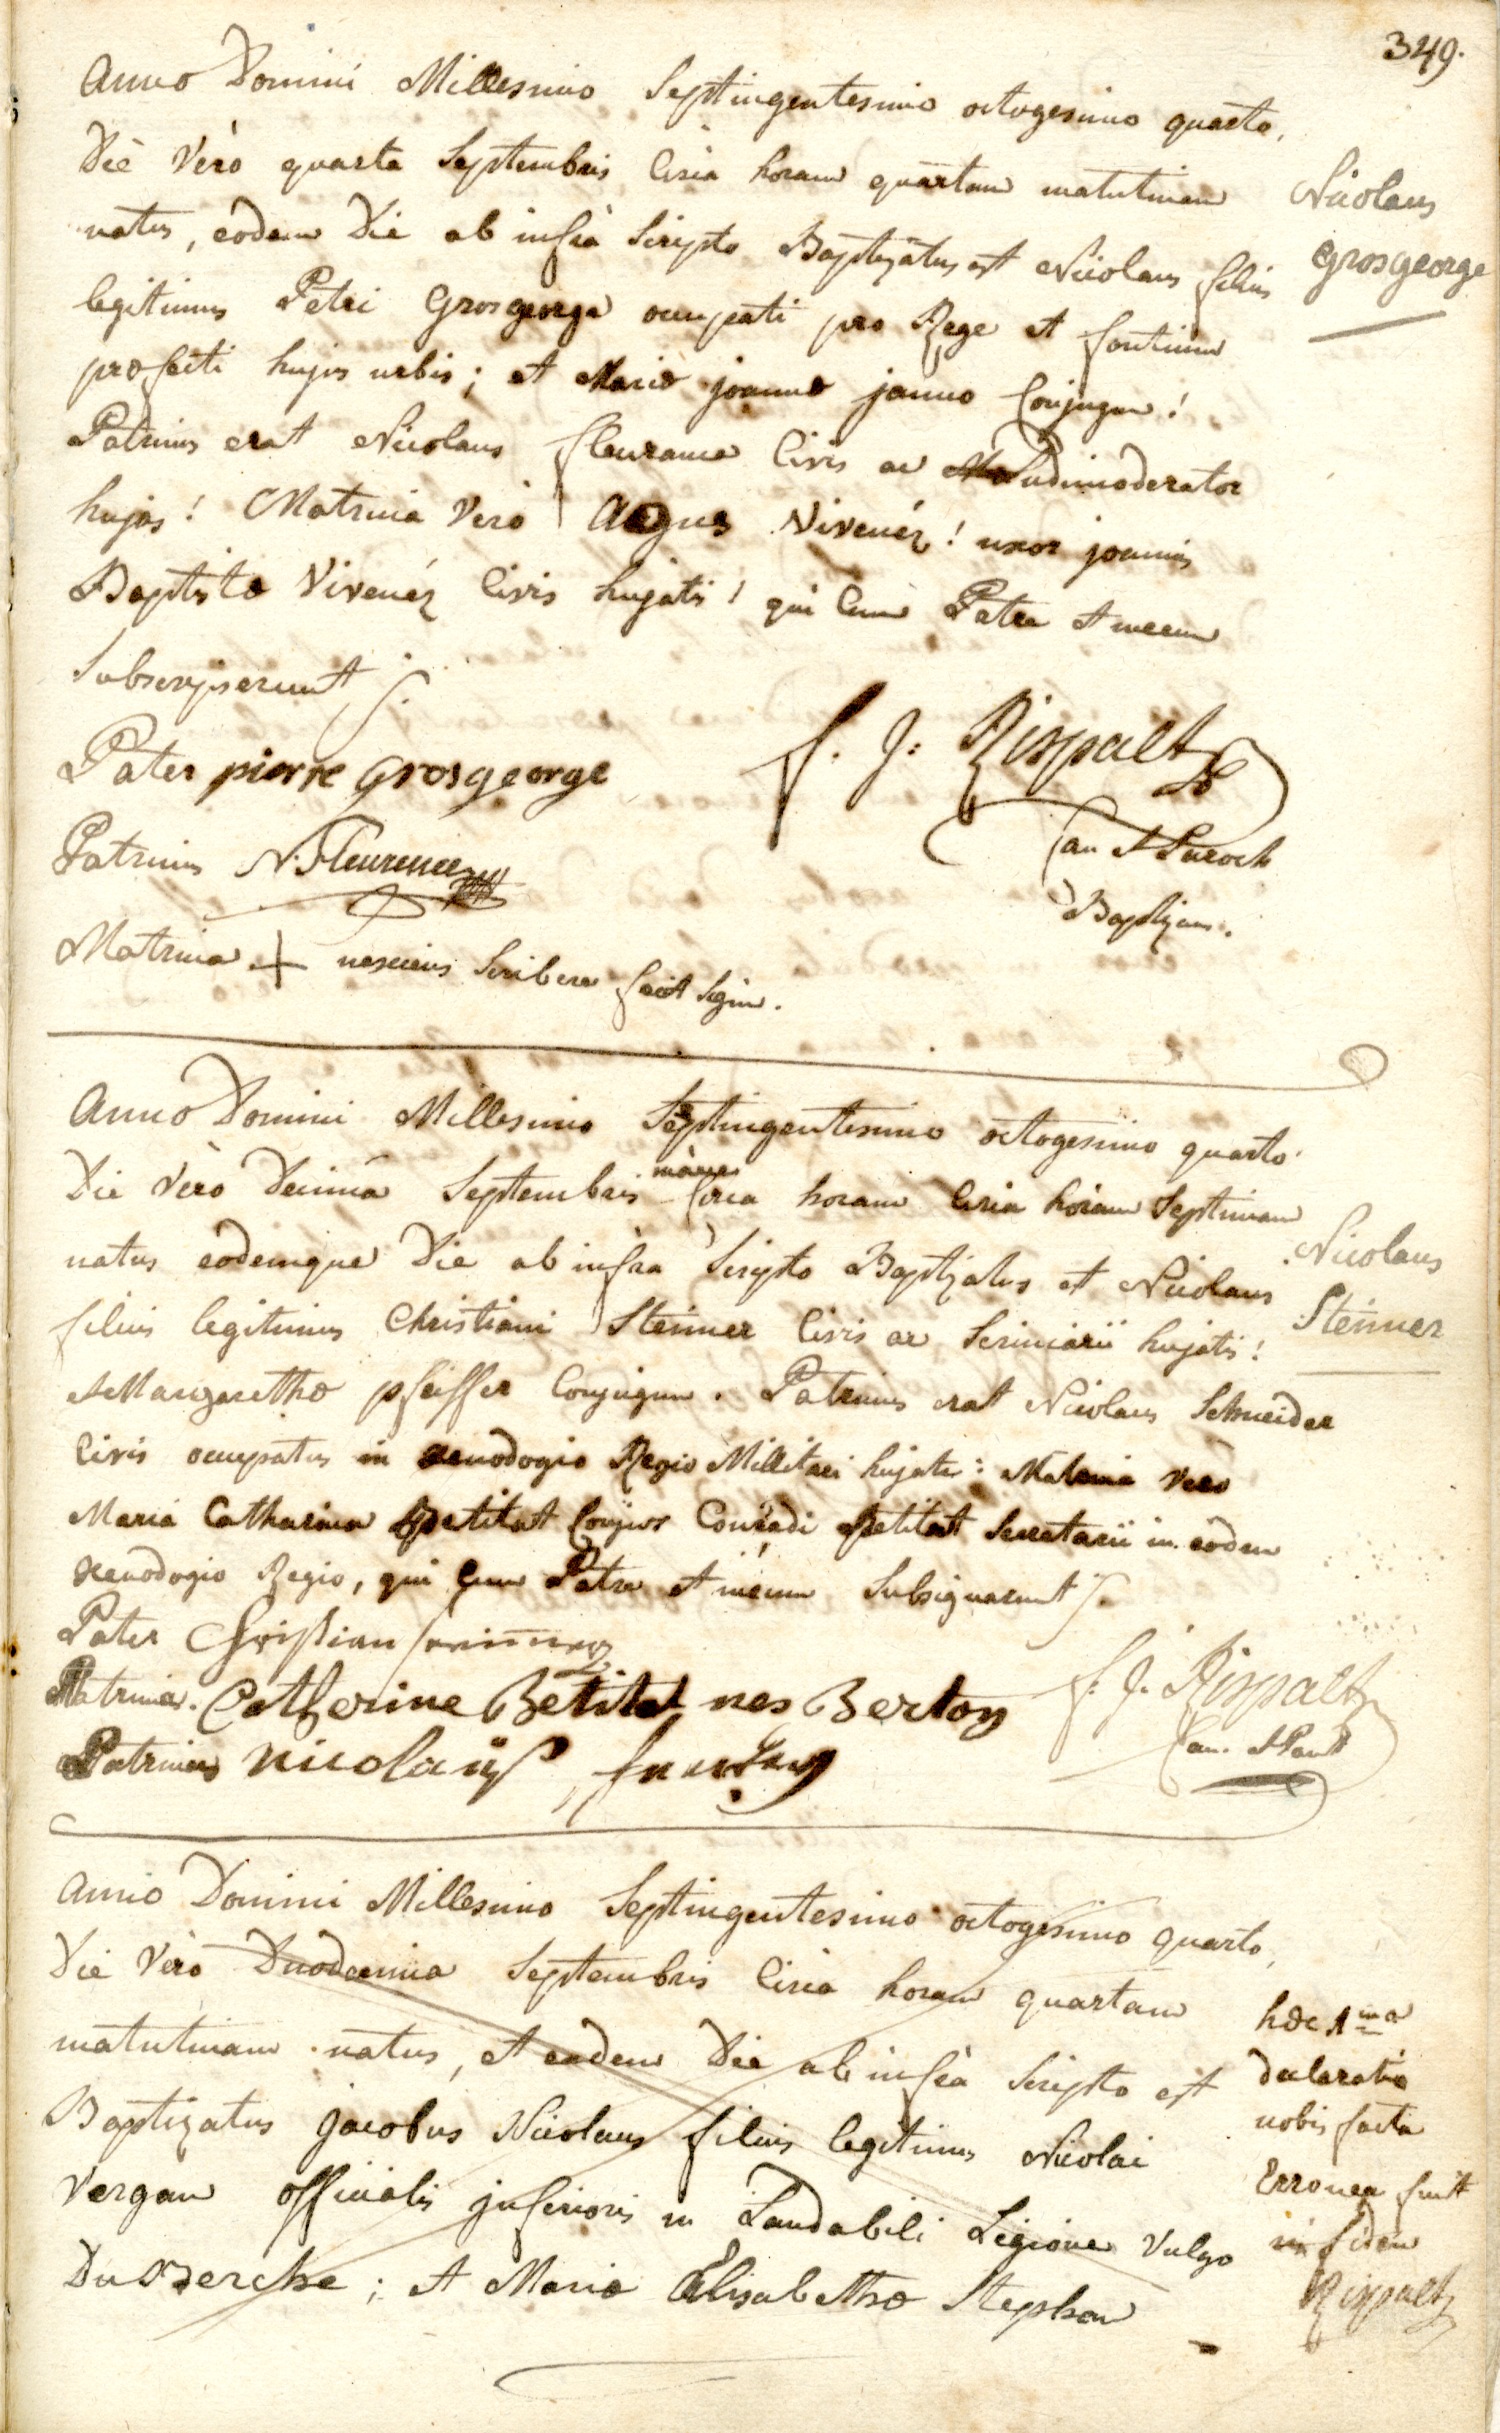 349.
Anno Domini Millesimo Septingentesimo octogesimo quarto,
Die Vero quarta Septembris Circa horam quartam matutinam
natus, eodem Die ab infra Scripto Baptizatus est Nicolaus filius
legitimus Petri Grosgeorge occupati pro Rege et fontium
profecti hujus urbis; et Mariæ joannæ janno Conjugum!
Patrinus erat Nicolaus fleurance Civis ac Ludimoderator
hujas! Matrina Vero Agnes Vivenéz! uxor joannis
Baptistæ Vivenéz Civis hujatis! qui Cum Patre et mecum
Subscripserunt
Nicolaus
Grosgeorge
Pater pierre grosgeorge
Patrinus N. Fleurence
Matrina + nesciens Scribere fecit Signum.
f. J: Rispalt
Can et Paroch
Baptizans.
Anno Domini Millesimo Septingentesimo octogesimo quarto
Die Vero Decima Septembris mane Circa horam Circa horam Septimam
natus eodemque Die ab infra Scripto Baptizatus est Nicolaus
filius legitimus Christiani Steinner Civis ac Scriniarii hujatis!
et Margarethæ pfeiffer Conjugum. Patrinus erat Nicolaus Schneider
Civis occupatus in xenodogio Regio Millitari hujate: Matrina Vero
Maria Catharina petitat Conjux Conradi petitat Secretarii in eodem
xenodogio Regio, qui Cum Patre et mecum Subsignarunt
Nicolaus
Steinner
Pater Christian
Matrina. Catherine Betitat nes Berton
Patrinus Nicolaus
f. J. Rispalt
Can. et Par
Anno Domini Millesimo Septingentesimo octogesimo quarto,
Die Vero Duodecima Septembris Circa horam quartam
matutinam natus, et eadem Die ab infra Scripto est
Baptizatus jacobus Nicolaus filius legitimus Nicolai
Vergan officialis inferioris in Laudabili Legione Vulgo
Du Berche; et Mariæ Elisabethæ Stephan
hæc 1ma
declaratio
nobis facta
Erronea fuit
in fidem
Rispalt